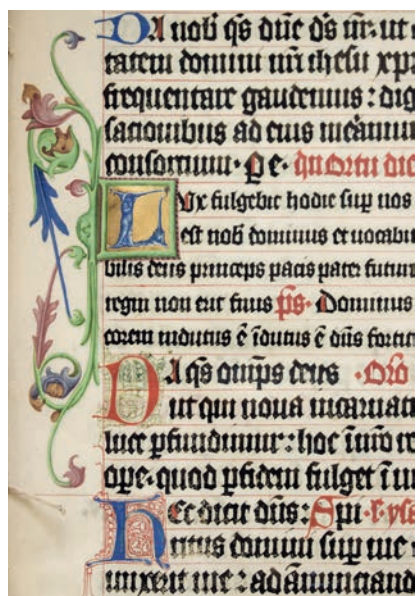 DA nob qs dūe ds nr. ut
tatem domini nri ihesu xpi
frequentare gaudemus : dig
sationibus ad eius meānur
consortium · Pe · In ortu die
LVx fulgebit hodie sup nos
est nob dominus et uocabi
bilis deus princeps pacis pater futuri
regni non erit finis ps · Dominus
corem indutus ē īdutus ē dūs fortit
DA qs omps deus · Orō
ut qui noua incarnati
luce pfundimur : hoc ī nrō re
ope · quod p fidem fulget ī m
HEc dicit dūs : Spi · r · ysa
ritus domini sup me ·
unxerit me : ad ānunciand